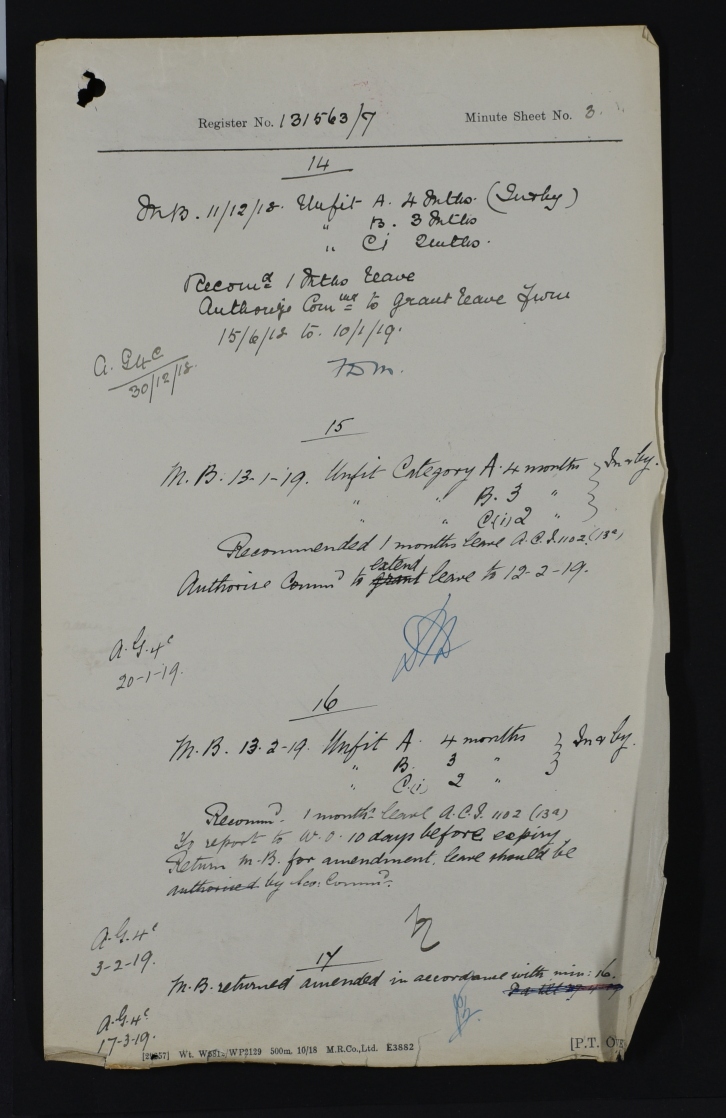 Register No. 131563/7 Minute Sheet No. 3.
14
M.B. 11/12/18. Unfit A. 4 Mths. (In & by)
" B. 3 Mths
" Ci 2 mths.
Recomd 1 Mths leave
Authorize Com to grant leave from
15/6/18 to 10/1/19.
A.G4c
30/12/18.
15
M.B. 13-1-19. Unfit Category A. 4 months } In & by.
" " B. 3 "
" " C(i) 2 "
Recommended 1 months leave A.C.I. 1102 (13a)
Authorise Commd to grant extend leave to 12-2-19.
A.G.4c
20-1-19.
16
M.B. 13-2-19. Unfit A. 4 months } In & by.
" B. 3 "
" C.(i) 2 "
Recommd. 1 months leave A.C.I. 1102 (13a)
To report to W.O. 10 days before expiry
Return M.B. for amendment, leave should be
authorised by Commd.
A.G.4c
3-2-19.
17
M.B. returned amended in accordance with min: 16.
A.G.4c
17-3-19.
Wt. /WP2129 500m. 10/18 M.R.Co.,Ltd. E3882 [P.T.